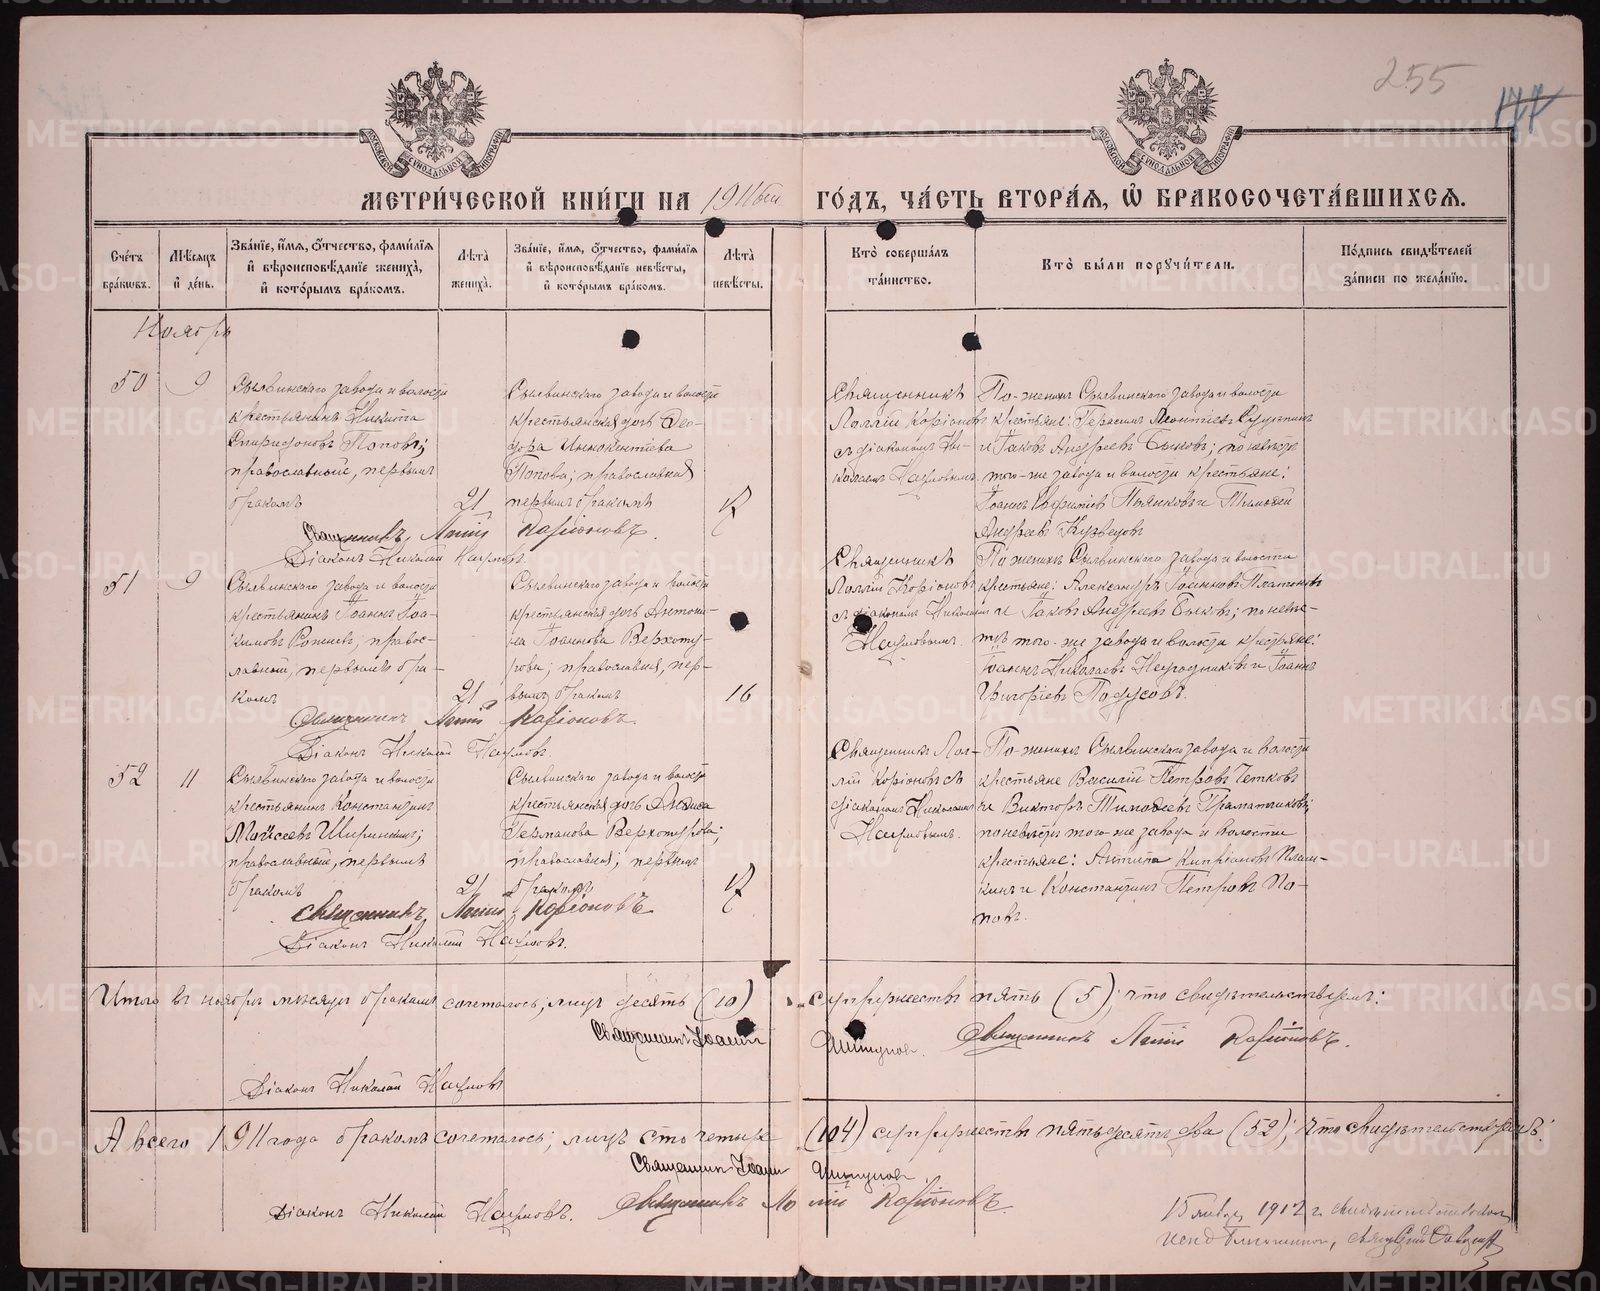 255
МЕТРИ́ЧЕСКОЙ КНИ́ГИ НА 1911ый ГО́ДЪ, ЧА́СТЬ ВТОРА́Я, Ѽ БРАКОСОЧЕТА́ВШИХСЯ.
Сче́тъ бра́кѡвъ.
Мѣ́сяцъ и҆ де́нь.
Зва́нїе, и҆́мя, ѻ҆́тчество, фамі́лїя и҆ вѣроисповѣ́данїе жениха̀, и҆ кото́рымъ бра́комъ.
Лѣ́та жениха̀.
Зва́нїе, и҆́мя, ѻ҆́тчество, фамі́лїя и҆ вѣроисповѣ́данїе невѣ́сты, и҆ кото́рымъ бра́комъ.
Лѣ́та невѣ́сты.
Кто̀ соверша́лъ та́инство.
Кто̀ бы́ли порꙋчи́тели.
По́дпись свидѣ́телей за́писи по жела́нїю.
Ноябрь
50
9
Сылвинскаго завода и волости
крестьянинъ Никита
Спиридоновъ Поповъ;
православный, первымъ
бракомъ
21
Сылвинскаго завода и волости
крестьянская дочь Ѳео-
дора Иннокентіева
Попова; православная
первымъ бракомъ
17
Священникъ
Лоллій Каріоновъ
съ діакономъ Ни-
колаемъ Наумовымъ
По женихѣ Сылвинскаго завода и волости
крестьяне: Герасимъ Леонтіевъ
и Іаковъ Андреевъ Быковъ; по невѣстѣ
того-же завода и волости крестьяне:
Іоаннъ Евфиміевъ Пьянковъ и Тимоѳей
Андреевъ Кузнецовъ
Священникъ Лоллій Каріоновъ.
Діаконъ Николай Наумовъ.
51
9
Сылвинскаго завода и волости
крестьянинъ Іоаннъ Іоа-
кимовъ; правос-
лавный, первымъ бра-
комъ
21
Сылвинскаго завода и волости
крестьянская дочь Антони-
на Іоаннова Верхоту-
рова; православная, пер-
вымъ бракомъ
16
Священникъ
Лоллій Каріоновъ
съ діакономъ Николаемъ
Наумовымъ.
По женихѣ Сылвинскаго завода и волости
крестьяне: Александръ Іоанновъ Платоновъ
и Іаковъ Андреевъ Быковъ; по невѣс-
тѣ того-же завода и волости крестьяне:
Іоаннъ Николаевъ и Іоаннъ
Григоріевъ
Священникъ Лоллій Каріоновъ.
Діаконъ Николай Наумовъ
52
11
Сылвинскаго завода и волости
крестьянинъ Константинъ
Моисеевъ Ширинкинъ;
православный, первымъ
бракомъ
21
Сылвинскаго завода и волости
крестьянская дочь Анфиса
Германова Верхотурова;
православная; первымъ
бракомъ
17
Священникъ Лол-
лій Каріоновъ съ
діакономъ Николаемъ
Наумовымъ.
По женихѣ Сылвинскаго завода и волости
крестьяне Василій Петровъ Четковъ
и Викторъ Тимоѳеевъ
по невѣстѣ того-же завода и волости
крестьяне: Антипа Кипріановъ
и Константинъ Петровъ По-
повъ.
Священникъ Лоллій Каріоновъ
Діаконъ Николай Наумовъ.
Итого въ ноябрѣ мѣсяцѣ бракомъ сочеталось; лицъ десять (10) супружествъ пять (5); что свидѣтельствуемъ:
Священникъ Іоаннъ Шитуновъ. Священникъ Лоллій Каріоновъ.
Діаконъ Николай Наумовъ
А всего 1911 года бракомъ сочеталось; лицъ сто четыре (104) супружествъ пятьдесятъ два (52); что свидѣтельствуемъ:
Священникъ Іоаннъ Шитуновъ
Діаконъ Николай Наумовъ. Священникъ Лоллій Каріоновъ.
15 января 1912 г.